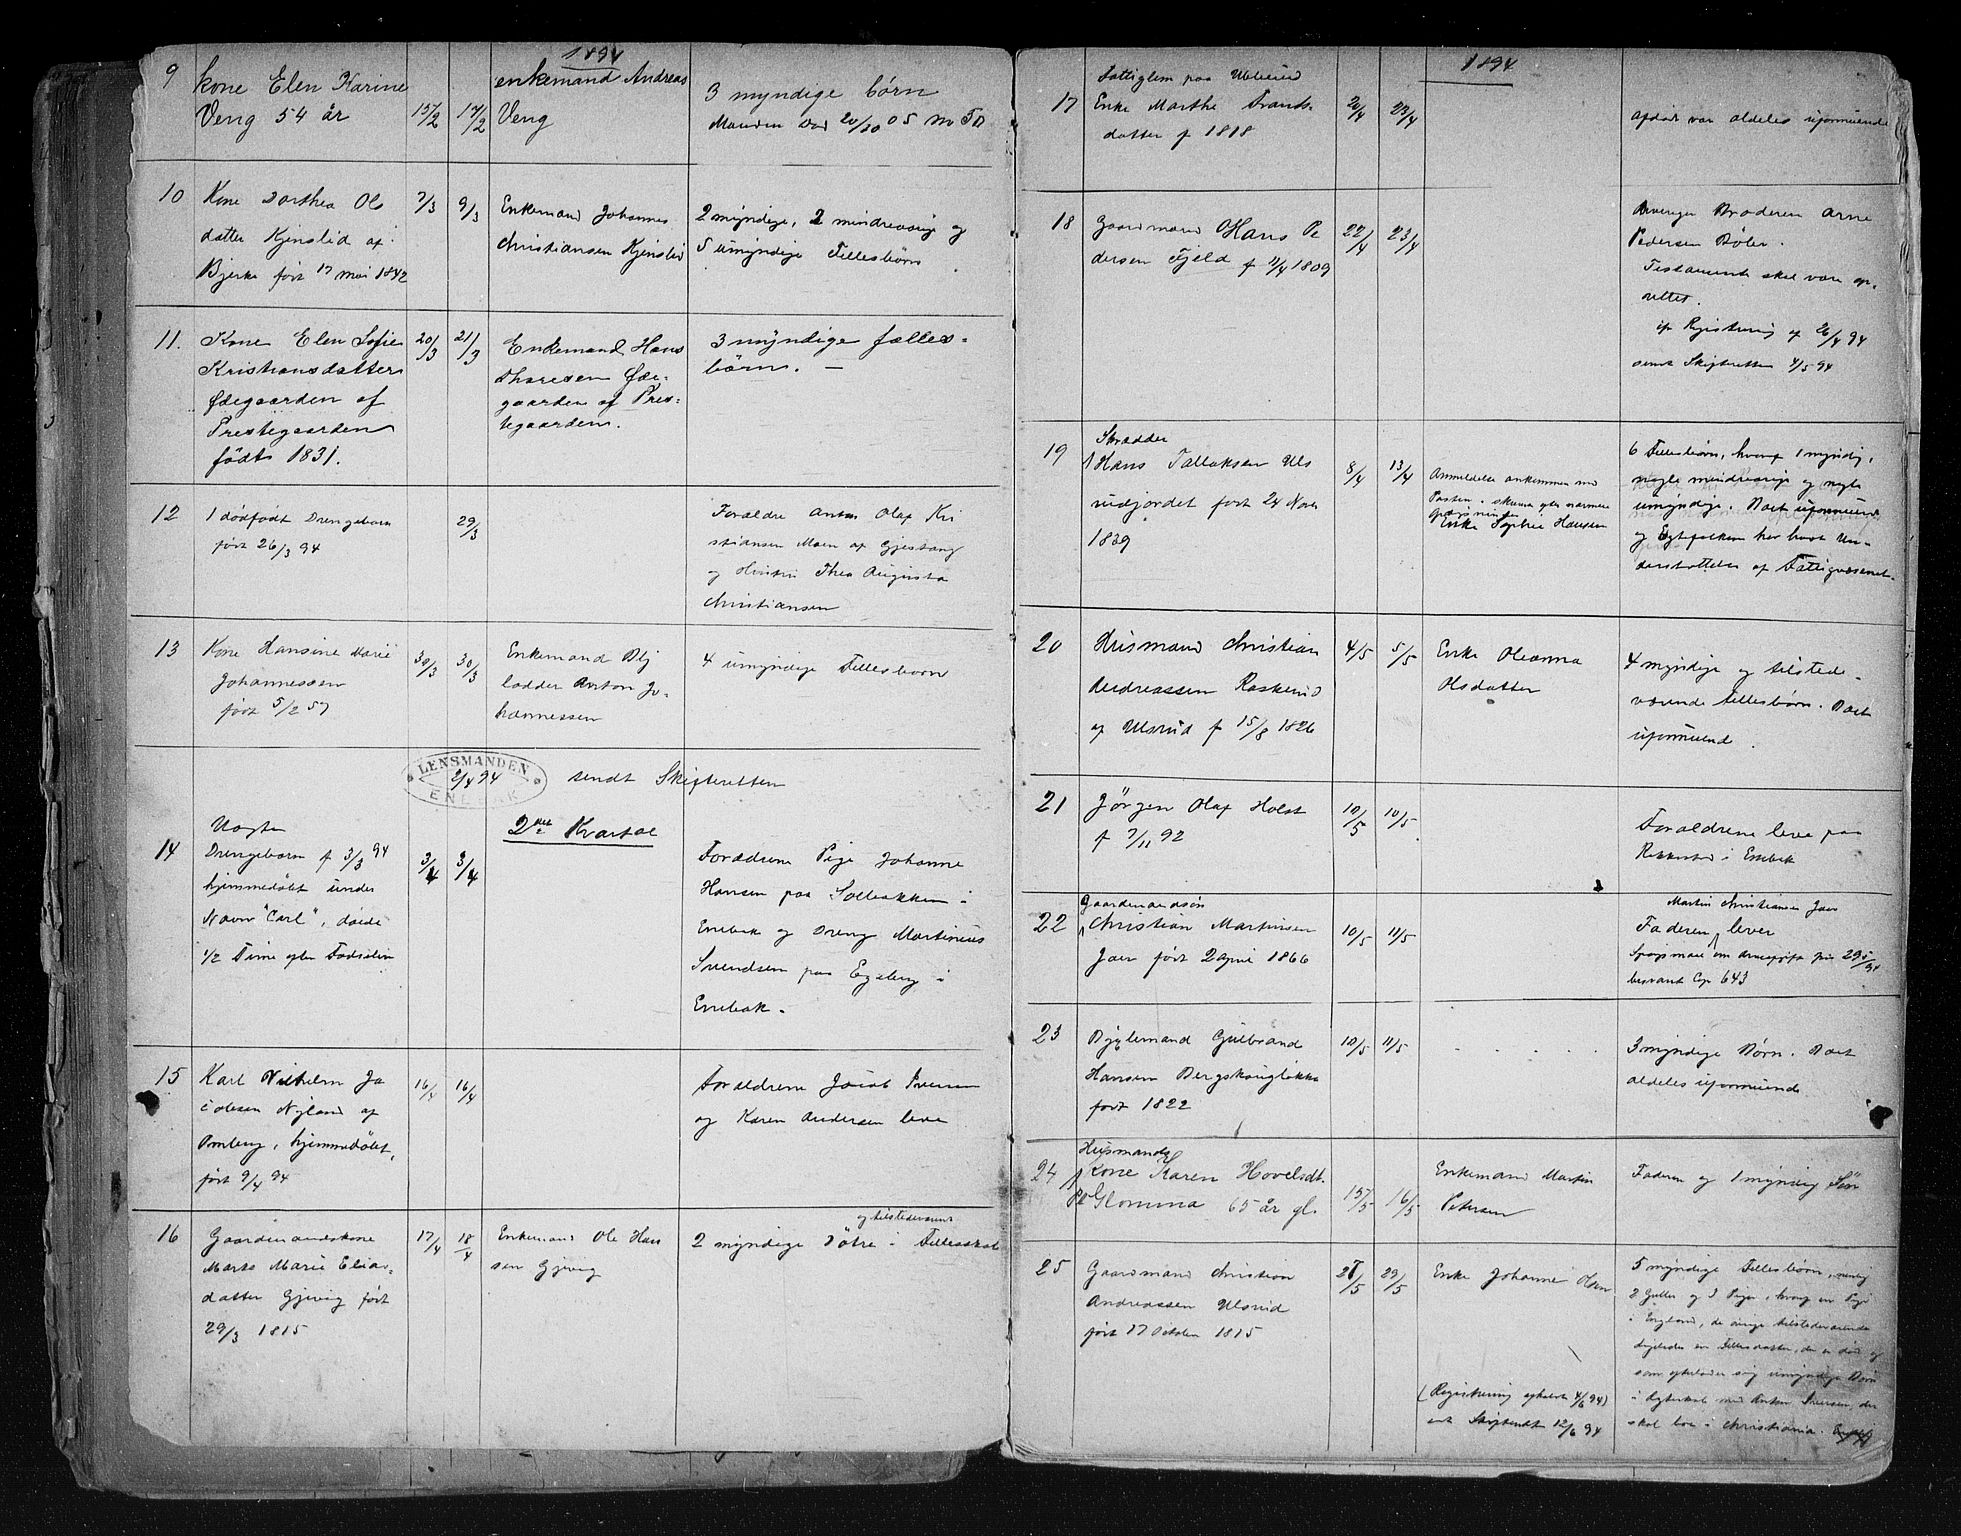 1894
9 kone Elen Karine
Veng 54 år
15/2 17/2
enkemand Andreas
Veng
3 myndige børn
Manden død 20/10 05
10 Kone Dorthea Ols
datter Kjenslid af
Bjerke født 17 mai 1842
7/3 9/3
Enkemand Johannes
Christiansen Kjenslid
2 myndige, 2 mindreaarige og
5 umyndige Fellesbørn
11. Kone Elen Sofie
Kristiansdatter
Ødegaarden af
Prestegaarden
født 1831.
20/3 21/3
Enkemand Hans
Thoresen Øde-
gaarden af Pres-
tegaarden.
3 myndige fælles-
børn. —
12 1 dødfødt Drengebarn
født 26/3 94
29/3
Forældre Anton Olaf Kri
stiansen Moen af Gjestang
og Hustru Thea Augusta
Christiansen
13 Kone Hansine Marie
Johannessen
født 5/2 57
30/3 30/3
Enkemand
Anton Jo-
hannessen
4 umyndige Fellesbørn
LENSMANDEN
2/4 94
sendt Skifteretten
2det Kvartal
14 Uægte
Drengebarn f 3/3 94
hjemmedøbt under
Navn "Carl", døde
1/2 Time efter Fødselen
3/4 3/4
Forældrene Pige Johanne
Hansen paa Solbakken i
Enebak og Dreng Martinius
Svendsen paa Egeberg i
Enebak.
15 Karl Vilhelm Ja
cobsen Nyland af
hjemmedøbt,
født 9/4 94
16/4 16/4
Forældrene Jacob Iversen
og Karen Andersen leve
16 Gaardmandskone
Marte Marie Elias-
datter Gjevig født
29/3 1815
17/4 18/4
Enkemand Ole Han
sen Gjevig
og tilstedeværende
2 myndige Døtre i Fellesskab
1894
Fattiglem paa
17 Enke Marthe Tronds-
datter f 1818
20/4 23/4
afdøde var aldeles uformuende
18 Gaardmand Hans Pe
dersen Fjeld f 11/4 1809
22/4 23/4
Arvinger Broderen Arne
Pedersen Bøler.
Testament skal være op-
rettet.
if Registrering af 26/4 94
sendt Skifteretten 4/5 94
Skrædder
19 Hans Tollaksen Uls
rudjordet født 24 Novbr
1839
8/4 13/4
Anmeldelse ankommen med
Posten
Enke Sophie Hansen
6 Fellesbørn, hvoraf 1 myndig,
nogle mindreaarige og nogle
umyndige. Boet uformuende
og Egtefolkene har havt Un-
derstøttelse af Fattigvæsenet.
20 Husmand Christian
Andreassen Raskerud
af Ulsrud f 15/8 1826
4/5 5/5
Enke Oleanna
Olsdatter
4 myndige og tilstede-
værende Fellesbørn. Boet
uformuend.
21 Jørgen Olaf Holst
f 7/11 92
10/5 10/5
Forældrene leve paa
Rekkestad i Enebak
Gaardmandsøn
22 Christian Martinsen
Jaer født 2 April 1866
10/5 11/5
Martin Christiansen Jaer
Faderen lever
Spørgsmaal om arveafgift
besvaret Cop 643
23 Bygslemand Gulbrand
Hansen Bergskaugløkka
født 1822
10/5 11/5
3 myndige Børn. Boet
aldeles uformuende
Husmands
24 Kone Karen Hovelsdt.
Glomma 65 år gl.
15/5 16/5
Enkemand Martin
Petersen
Faderen og 1 myndig Søn
25 Gaardmand Christian
Andreassen Ulsrud
født 17 October 1815
29/5
Enke Johanne Olsen
(Registrering afholdt 4/6 94)
sendt Skifteret 12/6 94
5 myndige Fellesbørn, nemlig
2 Gutter og 3 Piger, hvoraf en Pige
i England, de øvrige tilstedeværende
ligeledes en Fellesdatter, der er død og
som efterlader sig umyndige Børn
i Egteskab med Anton Iversen, der
skal bo i Christiania.